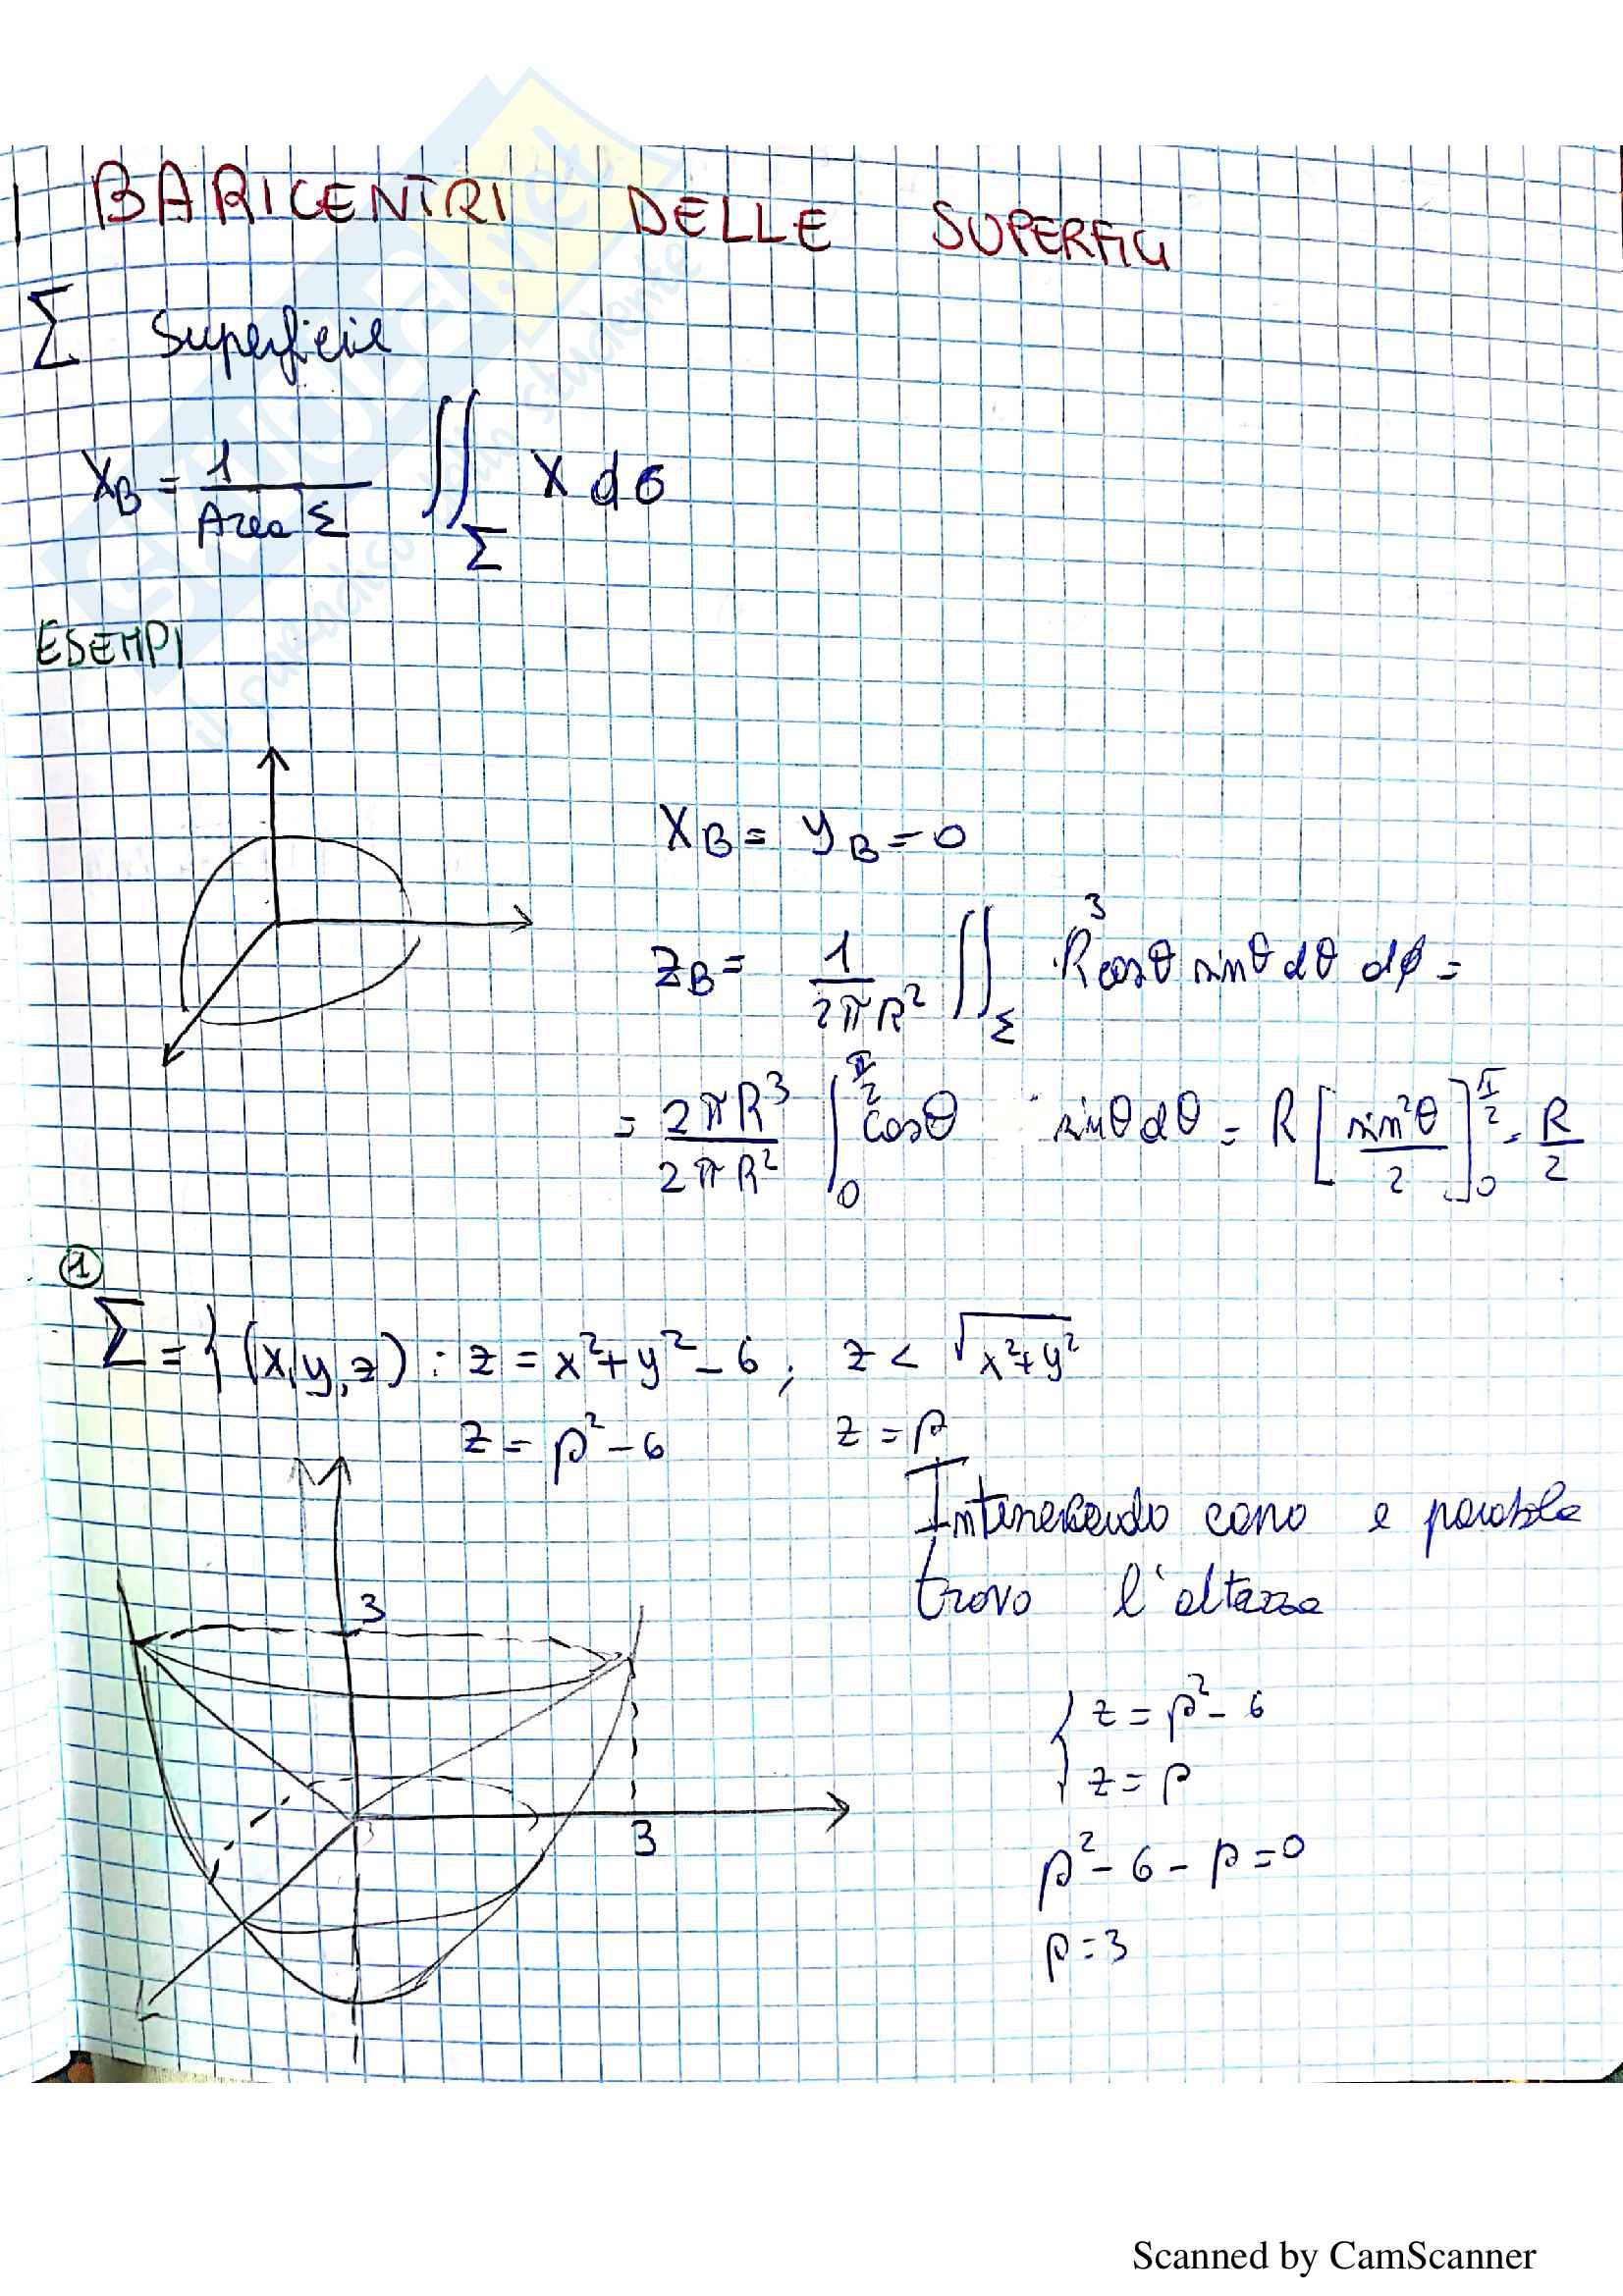 BARICENTRI DELLE SUPERFICI
Σ Superficie
X_B = 1/(Area Σ) ∬_Σ X dσ
ESEMPI
X_B = y_B = 0
z_B = 1/(2πR²) ∬_Σ R³ cosθ sinθ dθ dφ =
= 2πR³/(2πR²) ∫_0^{π/2} cosθ sinθ dθ = R [sin²θ/2]_0^{π/2} = R/2
①
Σ = { (x,y,z) : z = x²+y²-6 ; z < √(x²+y²)
z = ρ²-6 z = ρ
Intersecando cono e parabola
trovo l'altezza
3
3
{ z = ρ²-6
z = ρ
ρ²-6-ρ=0
ρ=3
SKUOLA.net
il paradiso dello studente
Scanned by CamScanner